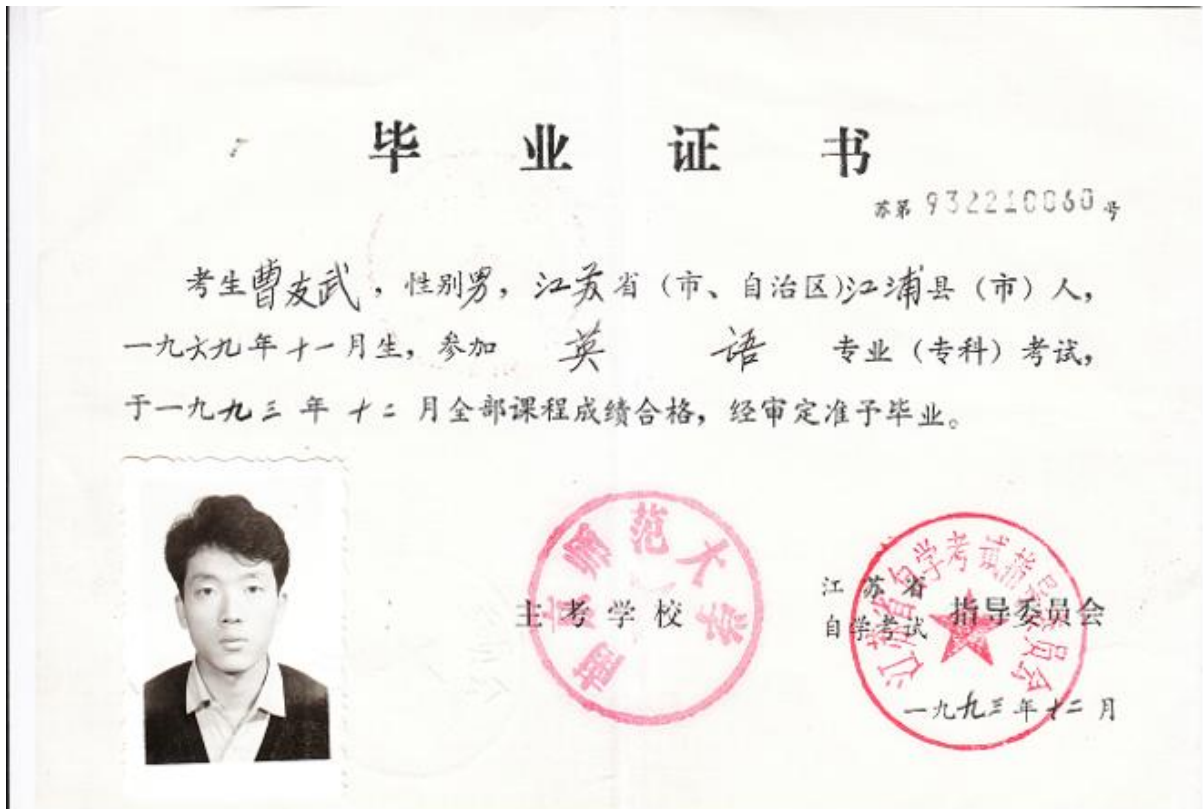 毕业证书
苏第 932210060 号
考生曹友武，性别男，江苏省（市、自治区）江浦县（市）人，
一九六九年十一月生，参加 英 语 专业（专科）考试，
于一九九三年十二月全部课程成绩合格，经审定准予毕业。
南京师范大学
主考学校
江苏省自学考试指导委员会
江苏省
自学考试 指导委员会
一九九三年十二月